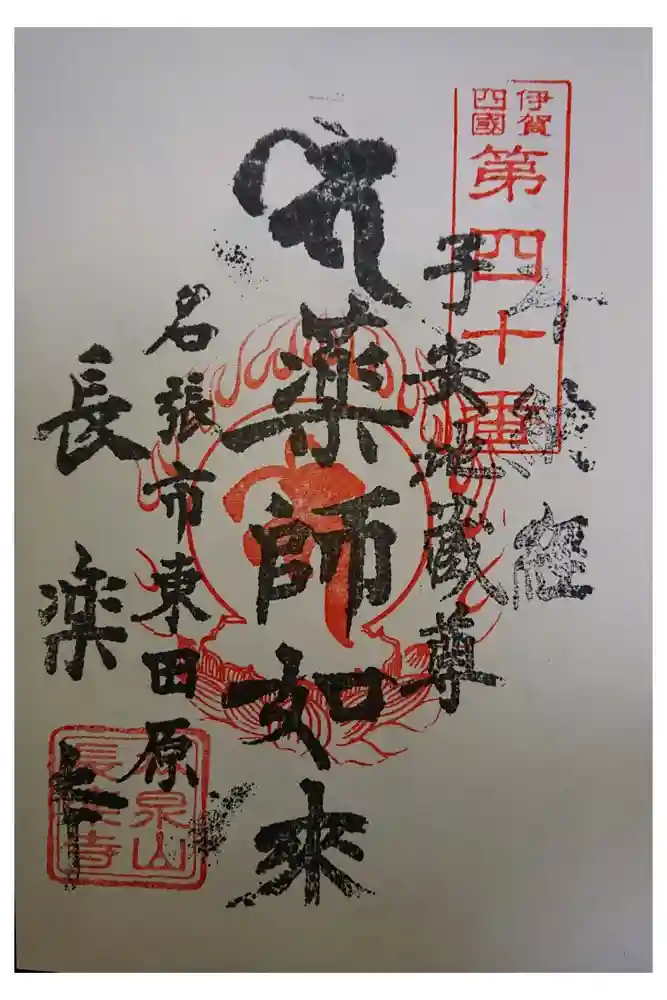 伊賀
四國
第四十番
奉納経
子安地蔵尊
薬師如來
名張市東田原
長楽寺
泉山
長楽寺